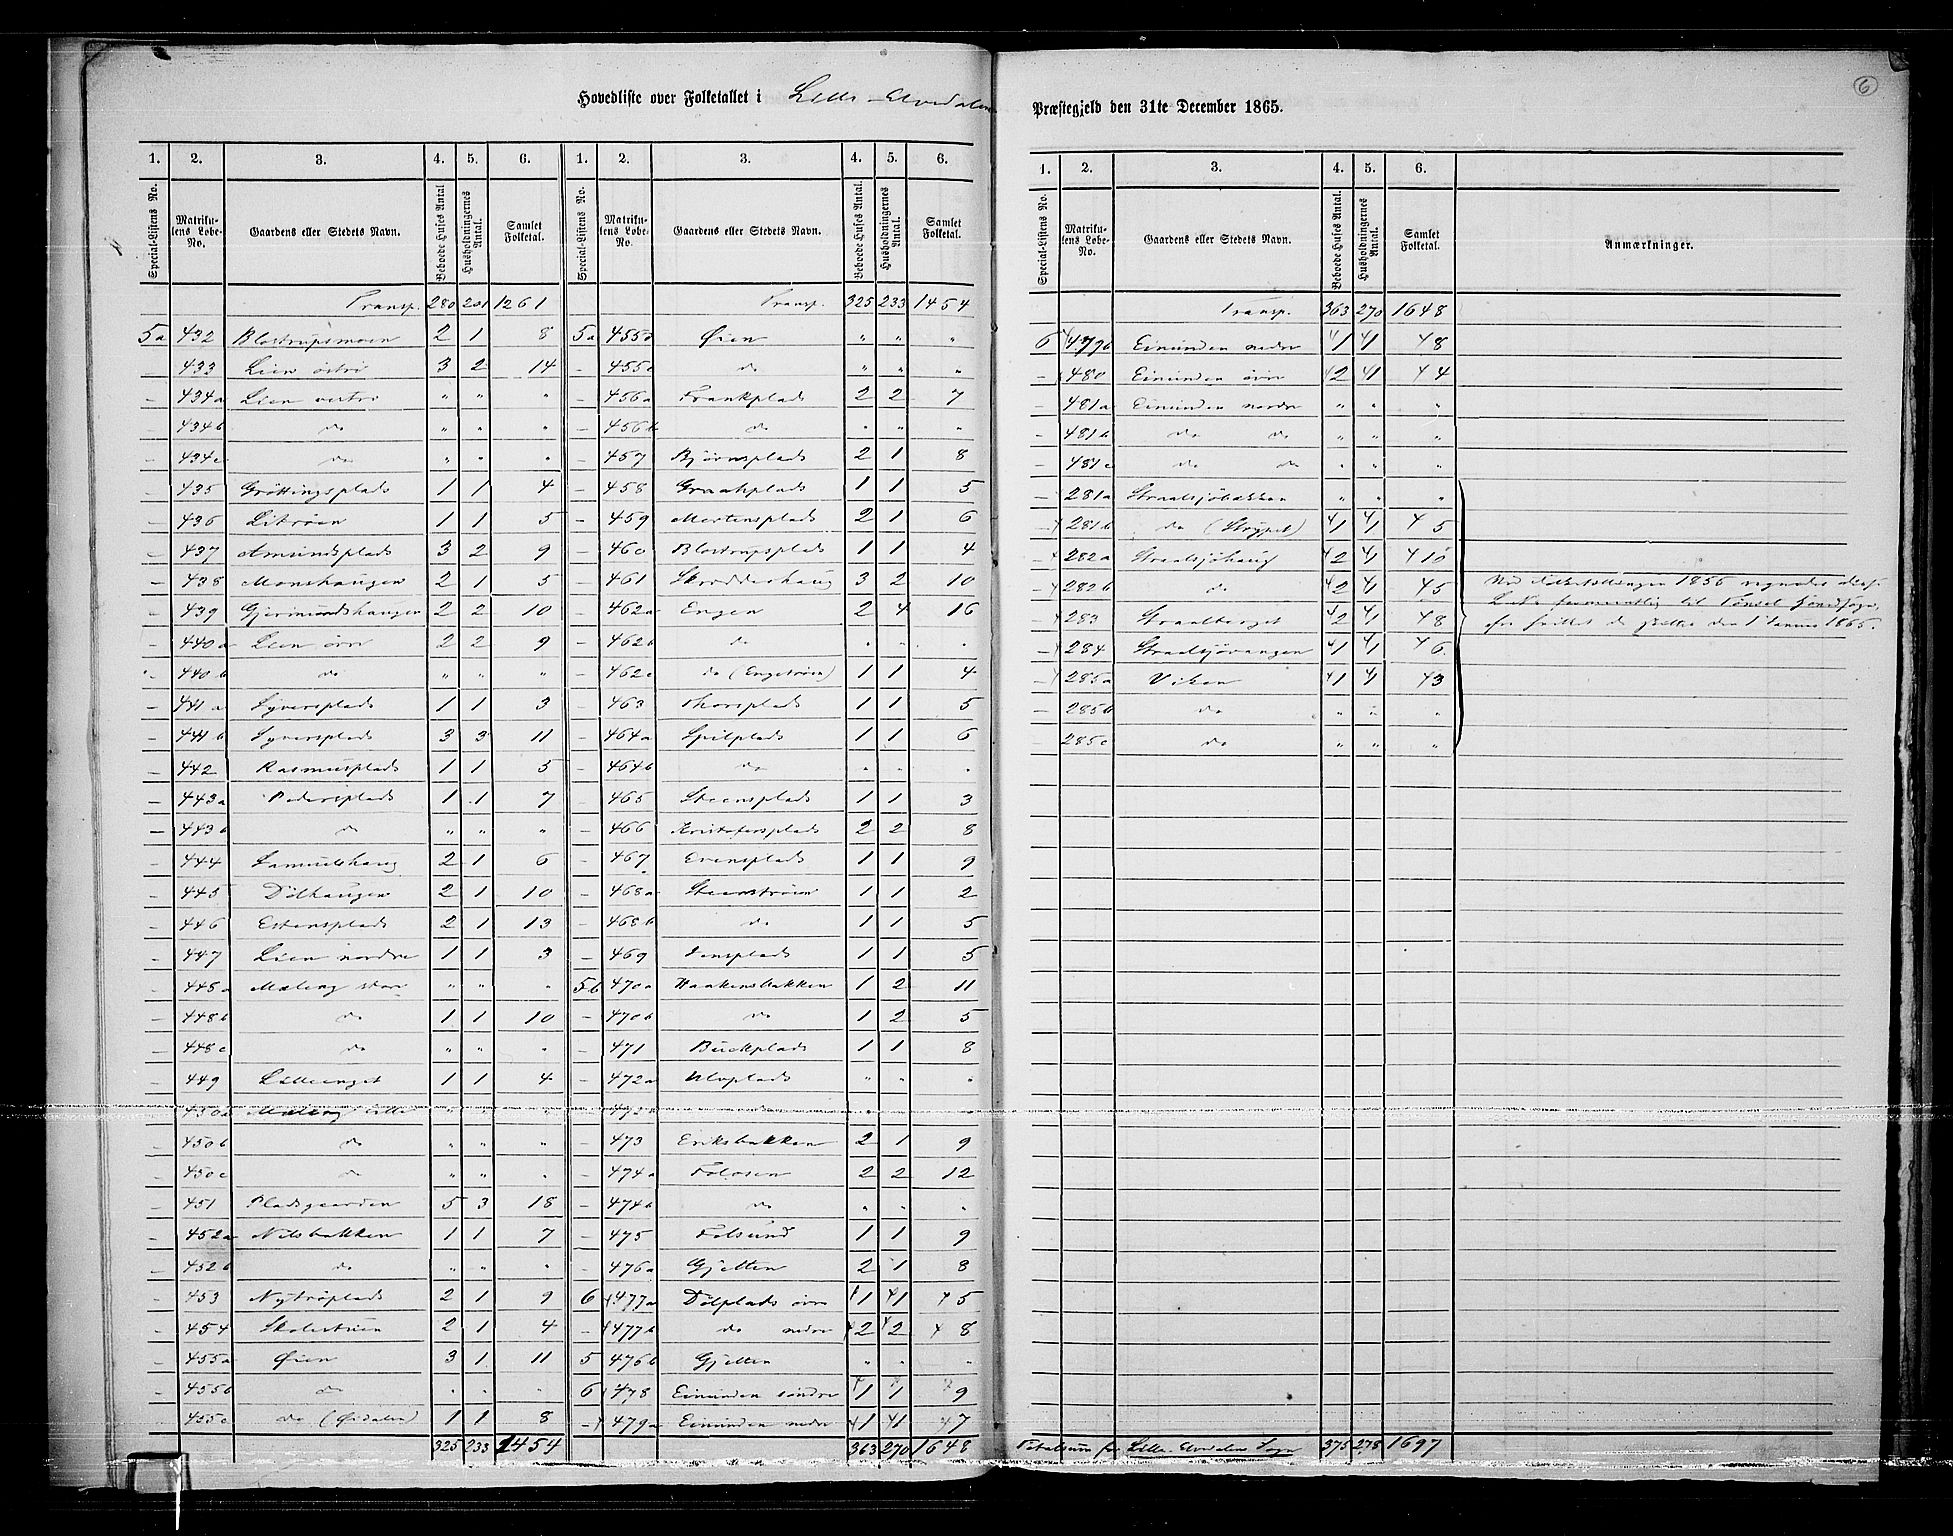 6
Hovedliste over Folketallet i Lille-Elvedalen Præstegjeld den 31te December 1865.
1. 2. 3. 4. 5. 6. 1. 2. 3. 4. 5. 6.
Special-Listens No. Matrikulens Løbe-No. Gaardens eller Stedets Navn. Beboede Huses Antal Husholdningernes Antal. Samlet Folketal. Special-Listens No. Matrikulens Løbe-No. Gaardens eller Stedets Navn. Beboede Huses Antal Husholdningernes Antal. Samlet Folketal.
Transp. 280 201 1261
5a 432 Blostrupsmoen 2 1 8
- 433 Lien østre 3 2 14
- 434a Lien vestre " " "
- 434b do " " "
- 434c do " " "
- 435 Grøttingsplads 1 1 4
- 436 Litrøen 1 1 5
- 437 Amundsplads 3 2 9
- 438 Monshaugen 2 1 5
- 439 Gjermundshaugen 2 2 10
- 440a Lien øvre 2 2 9
- 440b do " " "
- 441a Syversplads 1 1 3
- 441b Syversplads 3 3 11
- 442 Rasmusplads 1 1 5
- 443a Pedersplads 1 1 7
- 443b do " " "
- 444 Samuelshaug 2 1 6
- 445 Dølhaugen 2 1 10
- 446 Estensplads 2 1 13
- 447 Lien nordre 1 1 3
- 448a Moeleng store " " "
- 448b do 1 1 10
- 448c do " " "
- 449 Lilleenget 1 1 4
- 450a Moeleng lille " " "
- 450b do " " "
- 450c do " " "
- 451 Pladsgaarden 5 3 18
- 452a Nilsbakken 1 1 7
- 452b do " " "
- 453 Nytrøplads 2 1 9
- 454 Skolestuen 2 1 4
- 455a Øien 3 1 11
- 455b do " " "
- 455c do (Øidalen) 1 1 8
325 233 1454
Transp. 325 233 1454
5a 455d Øien " " "
- 455e do " " "
- 456a Frankplads 2 2 7
- 456b do " " "
- 457 Bjørnsplads 2 1 8
- 458 Graahplads 1 1 5
- 459 Mortensplads 2 1 6
- 460 Blostrupsplads 1 1 4
- 461 Skrædderhaug 3 2 10
- 462a Engen 2 4 16
- 462b do " " "
- 462c do (Engetrøen) 1 1 4
- 463 Thorsplads 1 1 5
- 464a Spilplads 1 1 6
- 464b do " " "
- 465 Steensplads 1 1 3
- 466 Kristofersplads 2 2 8
- 467 Evensplads 1 1 9
- 468a Steenstrøen 1 1 2
- 468b do 1 1 5
- 469 Jensplads 1 1 5
5b 470a Haakensbakken 1 2 11
- 470b do 1 2 5
- 471 Buckplads 1 1 8
- 472a Ulvplads " " "
- 472b " " "
- 473 Eriksbakken 2 1 9
- 474a Folosen 2 2 12
- 474b do " " "
- 475 Folsund 1 1 9
- 476a Gjelten 2 1 8
6 477a Dølplads øvre 1 1 5
- 477b do nedre 2 2 8
5 476b Gjelten " " "
6 478 Eimunden søndre 1 1 9
- 479a Eimunden nedre 1 1 7
363 270 1648
1. 2. 3. 4. 5. 6.
Special-Listens No. Matrikulens Løbe-No. Gaardens eller Stedets Navn. Beboede Huses Antal. Husholdningernes Antal. Samlet Folketal. Anmærkninger.
Transp. 363 270 1648
6 479b Eimunden nedre 1 1 8
- 480 Eimunden øvre 2 1 4
- 481a Eimunden nordre " " "
- 481b do do " " "
- 481c do do " " "
- 281a Straalsjøbækken " " "
- 281b do (Støypet) 1 1 5
- 282a Straalsjøhaug 2 1 10
- 282b do 2 1 5
- 283 Straalberget 2 1 8
- 284 Straalsjøvangen 1 1 6
- 285a Viken 1 1 3
- 285b do " " "
- 285c do " " "
Ved Folketællingen 1855 regnedes disse
til Tønset
1 Januar 1865.
Totalsum for Lille-Elvedalens Sogn 375 278 1697